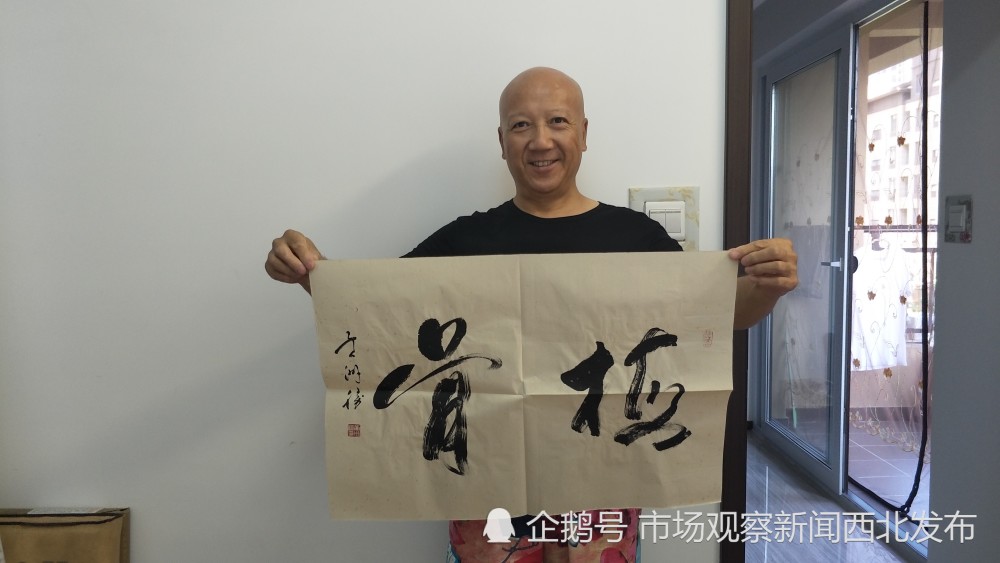 梅骨
企鹅号 市场观察新闻西北发布